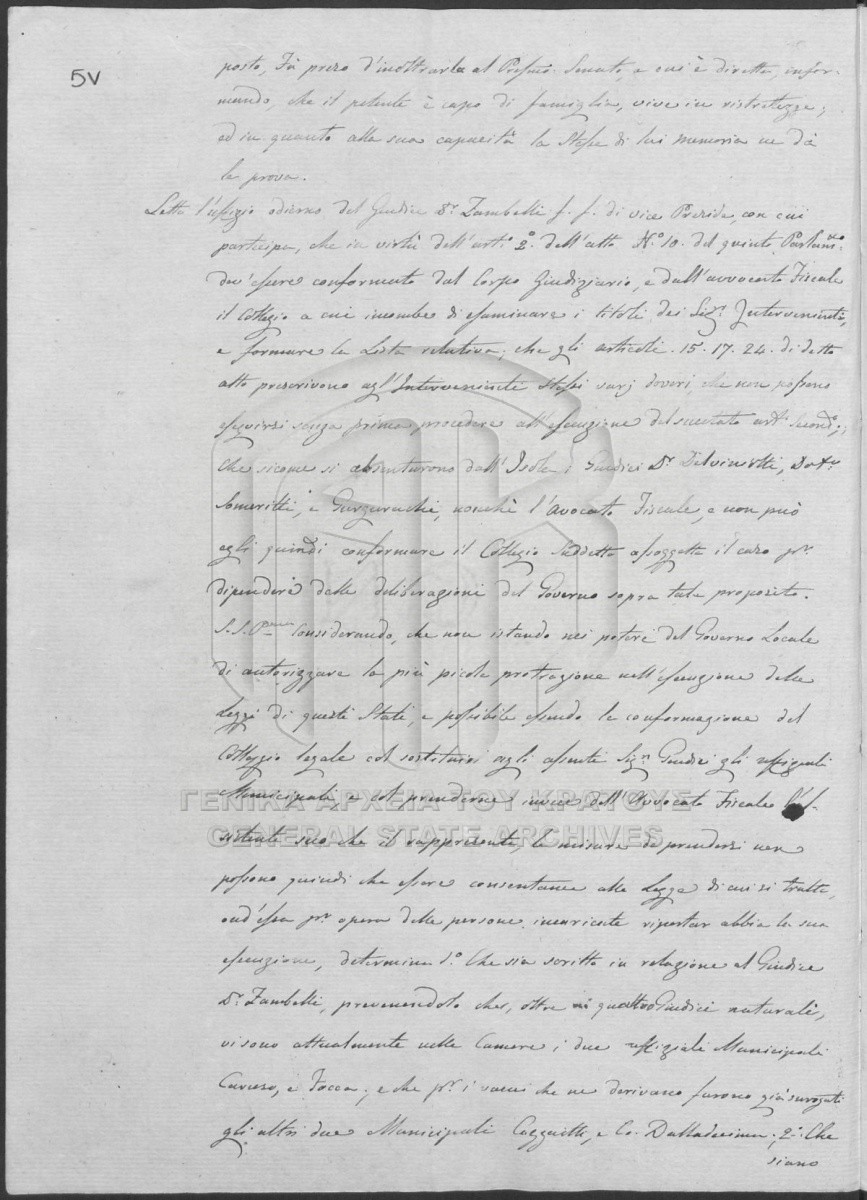 5V
posto, Fù preso d'inoltrarla al Presmo Senato, a cui è diretta, infor-
mando, che il petente è capo di famiglia, vive in ristretezze,
ed in quanto alla sua capacità la stessa di lui memoria ne dà
la prova.
Letto l'ufizio odierno del Giudice Dr. Zambelli f. f. di vice Preside, con cui
participa, che in virtù dell'arto. 2o. dell'atto No. 10. del quinto Parlamto.
dev'essere conformato dal Corpo Giudiziario, e dall'avvocato Fiscale
il Collegio a cui incombe di esaminare i titoli dei Sigri. Intervenienti,
e formare la Lista relativa; che gli articoli. 15. 17. 24. di detto
atto prescrivono agl'Intervenienti stessi varj doveri, che non possono
eseguirsi senza prima procedere all'esecuzione del succitato arto. Secondo;
Che sicome si absentarono dall'Isola i Giudici Dr. Delviniotti, Dotr.
Someritti, e Gurgurachi, nonchè l'avocato Fiscale, e non può
egli quindi conformare il Collegio suddetto assoggetta il caso pr.
dipendere dalle deliberazioni del Governo sopra tale proposito.
S. S. considerando, che non istando nei poteri del Governo Locale
di autorizzare la più picola protrazione nell'esecuzione delle
Leggi di questi Stati, e possibile essendo la conformazione del
Colleggio legale col sostituirsi agli assenti Sigri. Giudici gli uffiziali
Municipali, e col prendersene invece dell'Avvocato Fiscale l'As-
sistente suo che il rappresenta, le misure da prendersi non
possono quindi che essere consentanee alla Legge di cui si tratta,
ond'essa pr. opera delle persone incaricate riportar abbia la sua
esecuzione, determina 1o. Che sia scritto in relazione al Giudice
Dr. Zambelli, prevenendolo che, oltre ai quattro Giudici naturali,
vi sono attualmente nelle Camere i due uffiziali Municipali
Caruso, e Tocca; e che pr. i vacui che ne derivano furono già surrogati
gli altri due Municipali Cazzaitti, e Co. Dalladecima; 2o. Che
siano
ΓΕΝΙΚΑ ΑΡΧΕΙΑ ΤΟΥ ΚΡΑΤΟΥΣ
GENERAL STATE ARCHIVES